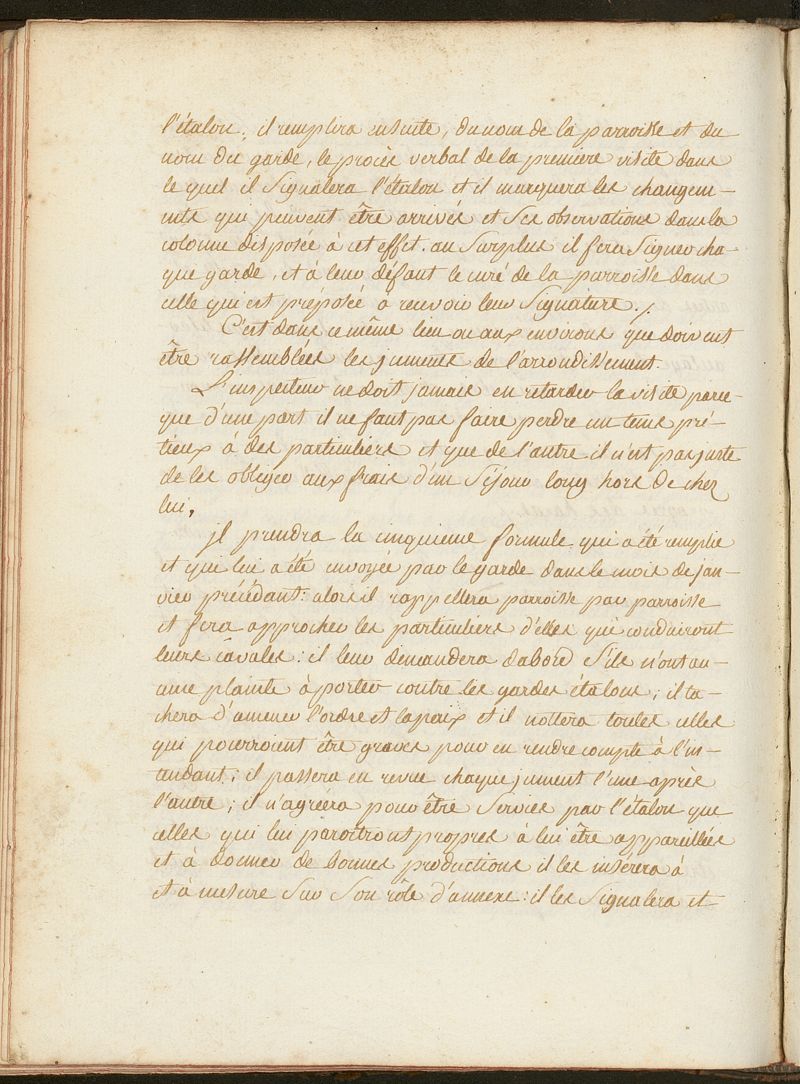 l'étalon; il remplira ensuite, du nom de la parroisse et du
nom du garde, le procès verbal de la premiere visite dans
le quel il signalera l'étalon et il marquera les changem-
ents qui peuvent être arrivés et ses observations dans la
colonne disposée à cet effet. au surplus il fera signer cha-
que garde, et à leur défaut le curé de la parroisse dans
celle qui est préposée à recevoir leur signature./
C'est dans ce même lieu ou aux environs que doivent
être rassemblées les juments de l'arrondissement.
L'inspecteur ne doit jamais en retarder la visite parce-
que d'une part il ne faut pas faire perdre un tems pré-
tieux à des particuliers et que de l'autre il n'est pas juste
de les obliger aux frais d'un séjour long hors de chez
lui,
jl prendra la cinquieme formule qui a été remplie
et qui lui a été envoyée par le garde dans le mois de jan-
vier précédant: alors il rappellera parroisse par parroisse
et fera approcher les particuliers d'elles qui conduiront
leurs cavales: il leur demandera dabord s'ils n'ont au-
cune plainte à porter contre les gardes étalons; il ta-
chera d'amener l'ordre et la paix et il nottera toutes celles
qui pourroient être graves pour en rendre compte à l'in-
tendant; il passera en revue chaque jument l'une après
l'autre; il n'agréera pour être servies par l'étalon que
celles qui lui paroitront propres à lui être appareillées
et à donner de bonnes productions il les insérera à
et à mesure sur son rôle d'annexe: il les signalera et